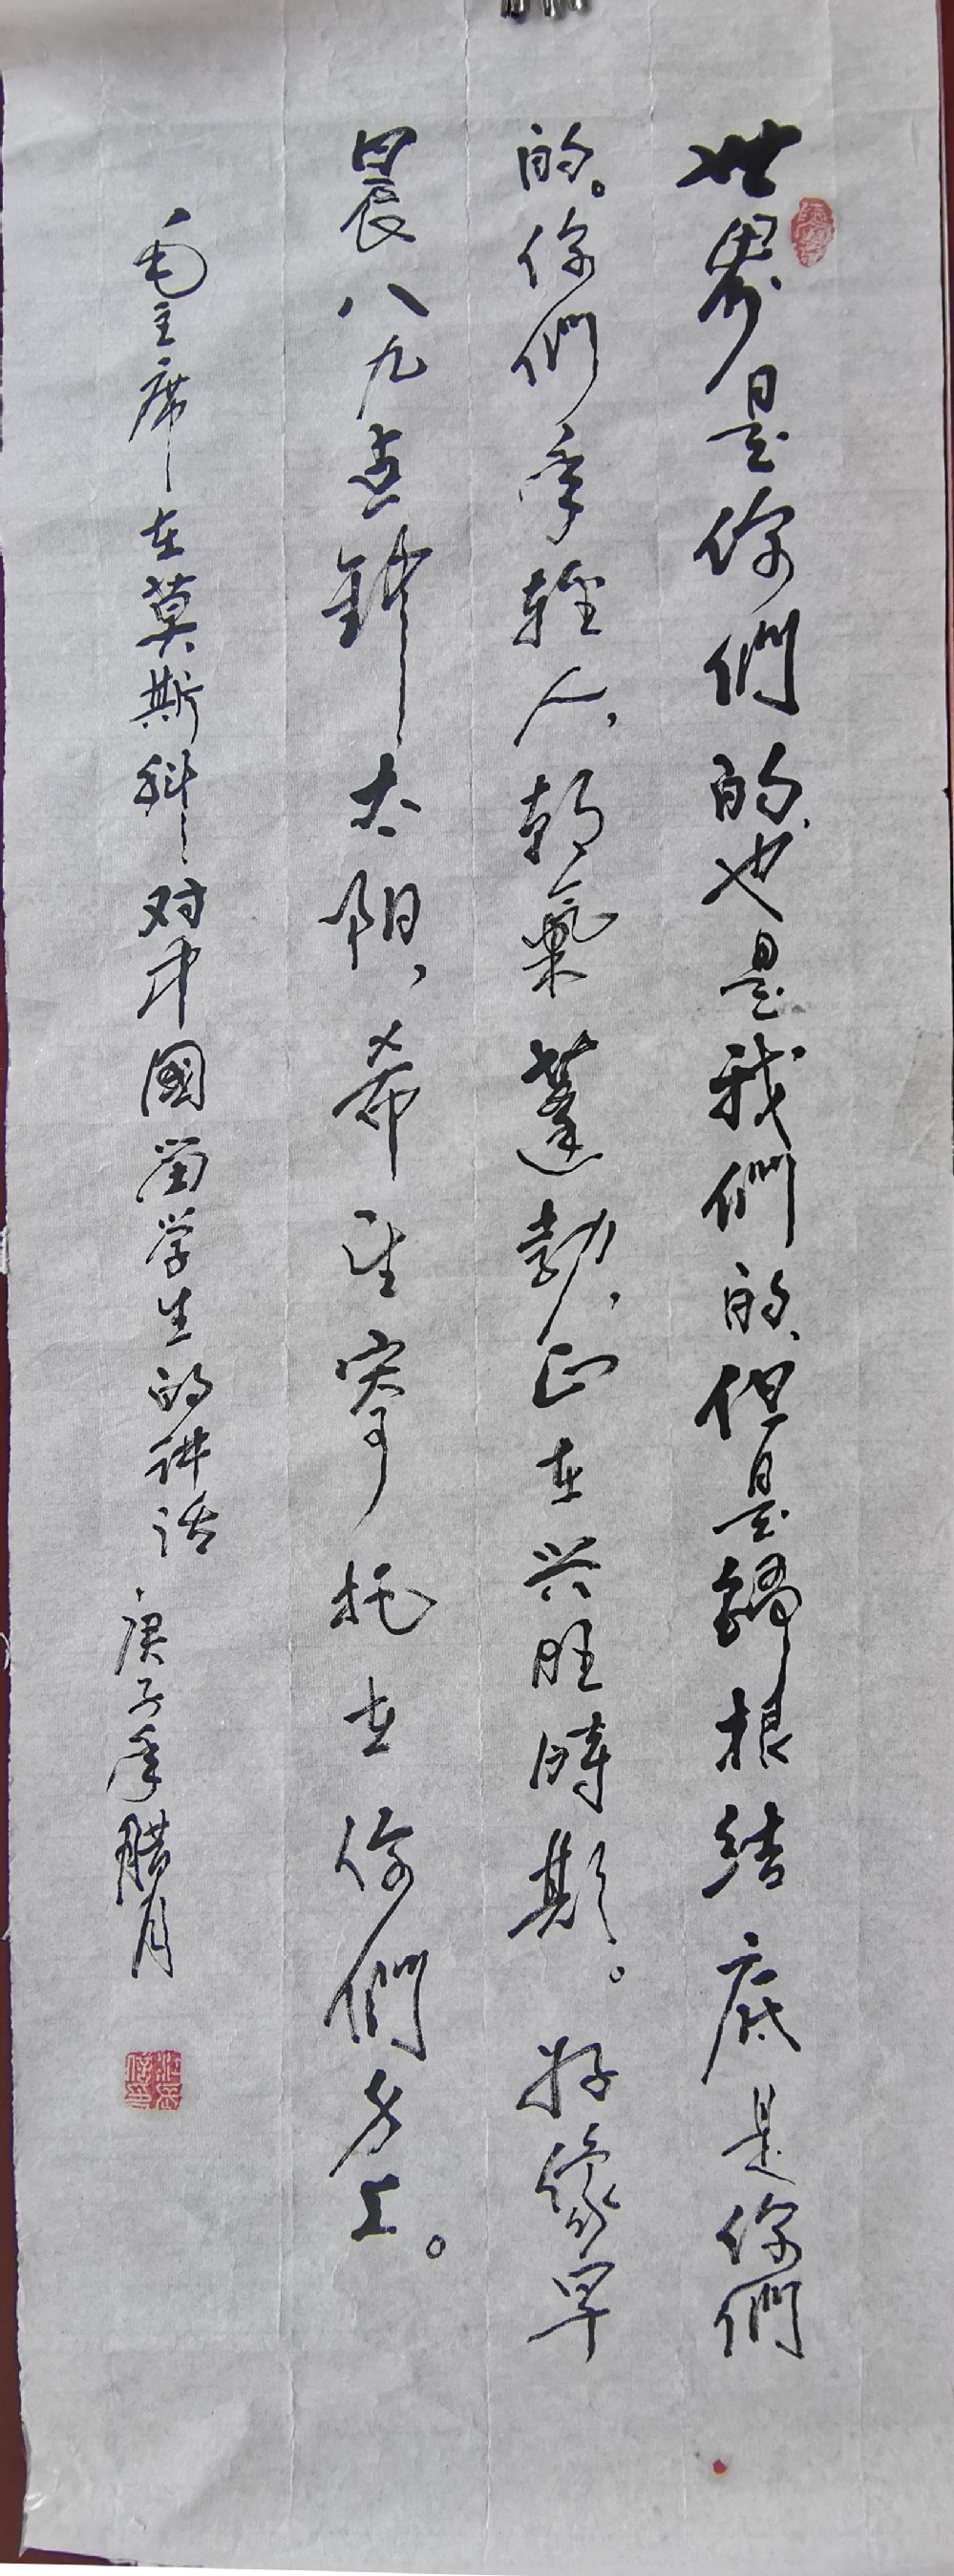 世界是你們的、也是我們的、但是歸根结底是你們
的。你們年輕人，朝氣蓬勃，正在兴旺時期。好像早
晨八九点钟太阳，希望寄托在你們身上。
毛主席在莫斯科对中國留学生的讲话 庚子年腊月